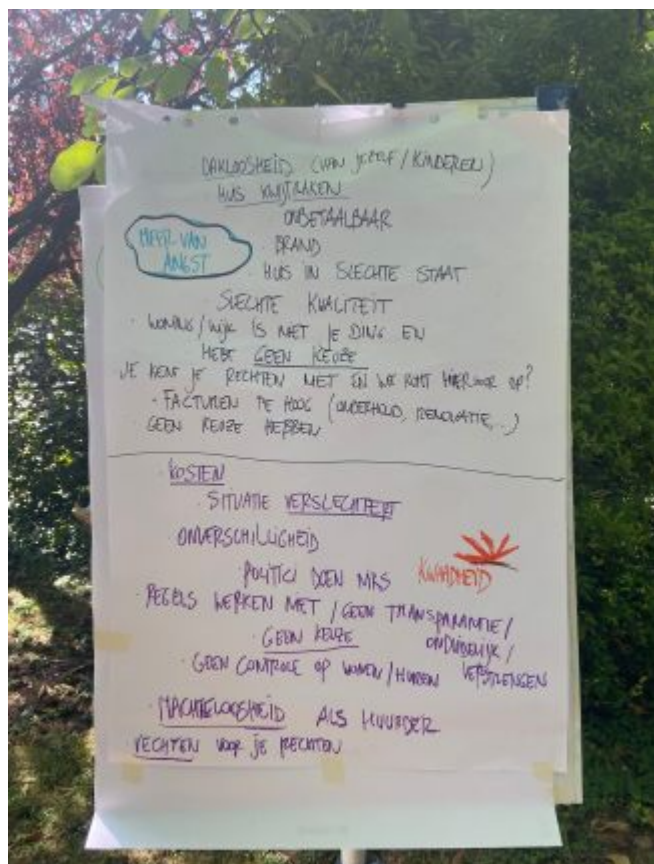 DAKLOOSHEID (VAN JEZELF / KINDEREN)
HUIS KWIJTRAKEN
ONBETAALBAAR
MEER VAN
ANGST
BRAND
HUIS IN SLECHTE STAAT
SLECHTE KWALITEIT
· WONING / WIJK IS NIET JE DING EN
HEBT GEEN KEUZE
JE KENT JE RECHTEN NIET EN WE KOMT HIERVOOR OP?
· FACTUREN TE HOOG (ONDERHOUD, RENOVATIE, ...)
· GEEN KEUZE HEBBEN
· KOSTEN
· SITUATIE VERSLECHTERT
ONVERSCHILLIGHEID
POLITICI DOEN NIKS
KWAADHEID
· REGELS WERKEN NIET / GEEN TRANSPARANTIE /
ONDUIDELIJK /
· GEEN KEUZE
VERSTRENGEN
· GEEN CONTROLE OP WONEN / HUREN
· MACHTELOOSHEID ALS HUURDER
VECHTEN VOOR JE RECHTEN